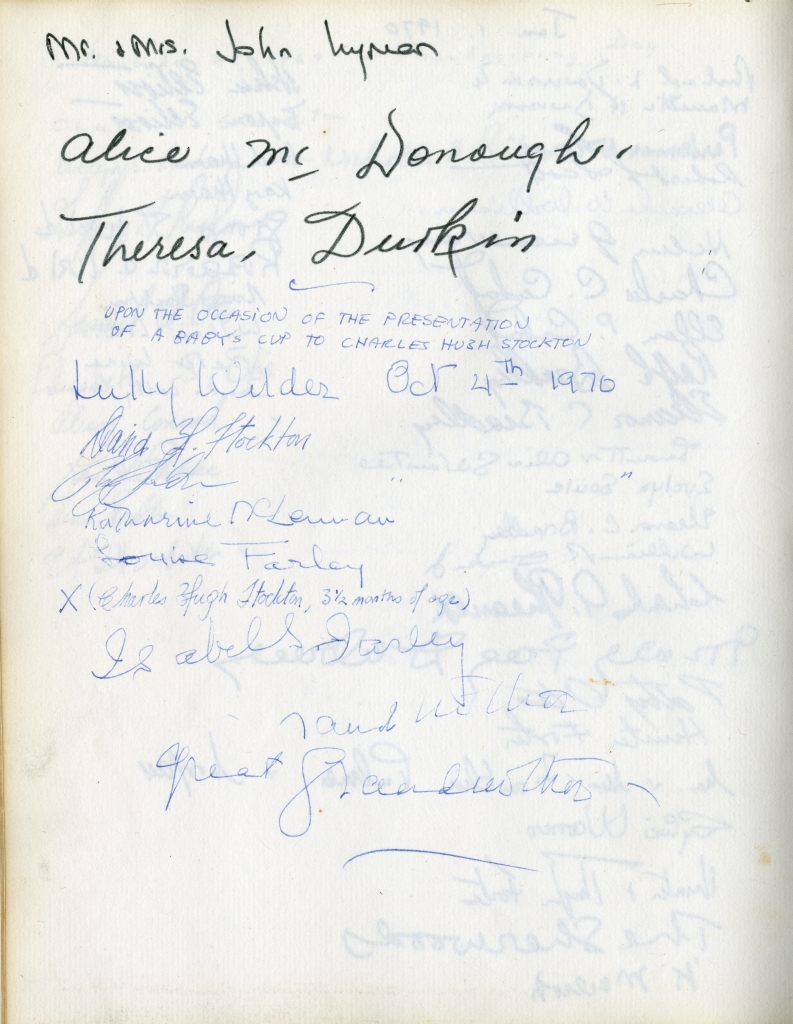 Mr. & Mrs. John Lyman
Alice Mc Donough.
Theresa. Durkin
UPON THE OCCASION OF THE PRESENTATION
OF A BABY'S CUP TO CHARLES HUGH STOCKTON
Lully Wilder Oct 4th 1970
David H. Stockton
Katharine McLennan
Louise Farley
X (Charles Hugh Stockton, 3½ months of age)
Isabell S. Farley
Great Grandmother